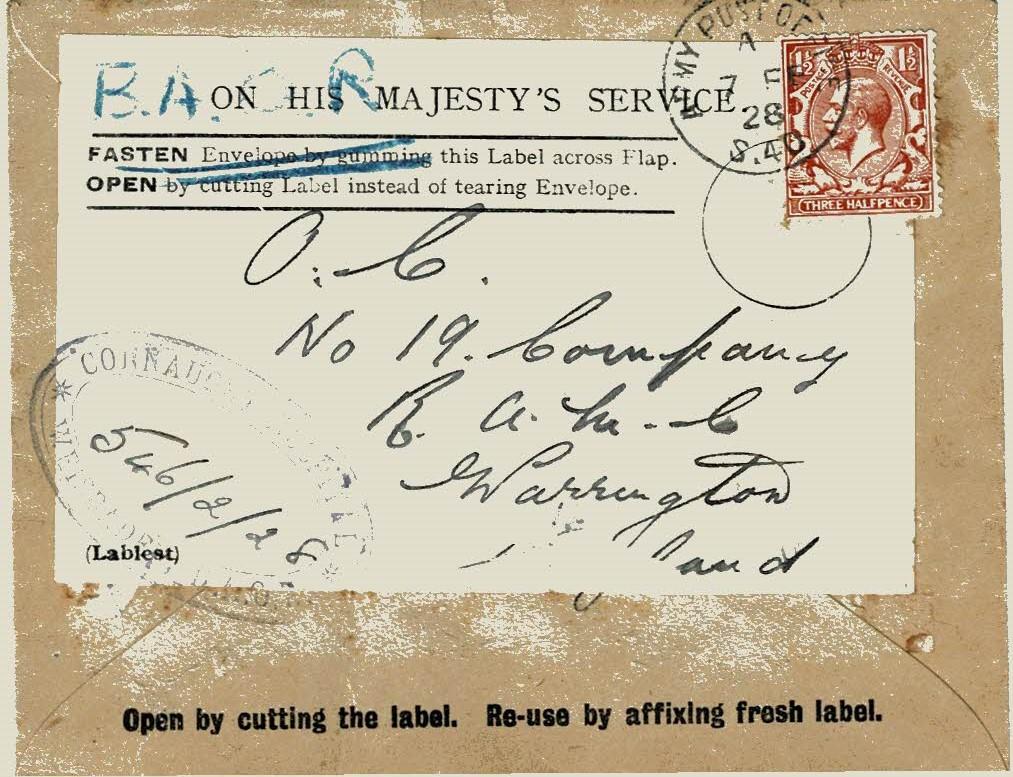 B.A.O.R
ON HIS MAJESTY'S SERVICE.
FASTEN Envelope by gumming this Label across Flap.
OPEN by cutting Label instead of tearing Envelope.
ARMY POST OF
7 FE
28
S.40
1½ 1½
POSTAGE REVENUE
THREE HALFPENCE
O.C.
No 19. Company
R.A.M.C
Warrington
CONNAUGHT
546/2/28
(Lablest)
Open by cutting the label. Re-use by affixing fresh label.